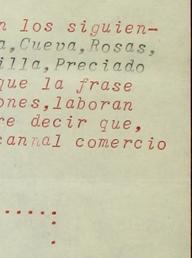 n los siguien-
a,Cueva,Rosas,
illa,Preciado
que la frase
ones,laboran
re decir que,
cannal comercio